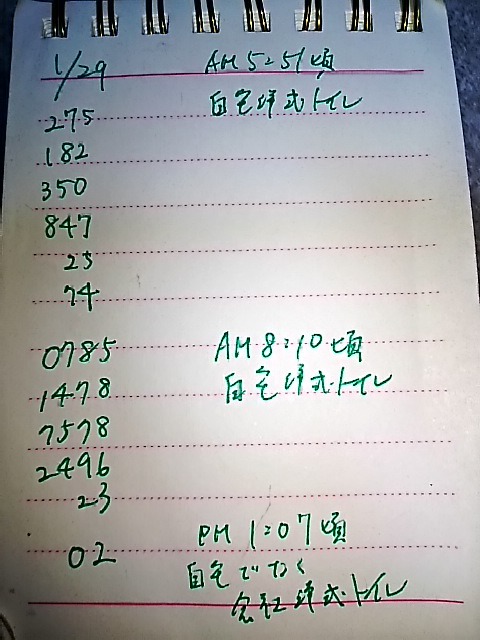 1/29 AM 5:51頃
275 自宅洋式トイレ
182
350
847
25
74
0785 AM 8:10頃
1478 自宅洋式トイレ
7578
2496
23
02 PM 1:07頃
自宅でなく
会社洋式トイレ